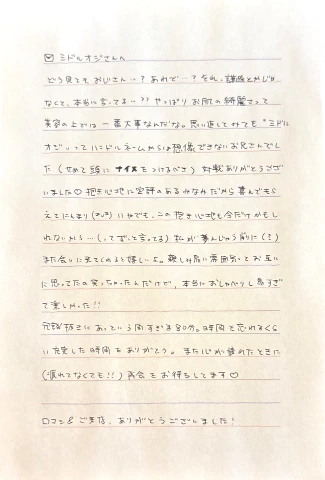 ✉ ミドルオジさんへ
どう見てもおじさん…？あれで…？それ、謙遜とかじゃ
なくて、本当に言ってる…？？やっぱりお肌の綺麗さって
美容の上では一番大事なんだな。思い返してみても"ミドル
オジ"ってハンドルネームからは想像できないお兄さんでし
た（せめて頭にナイスをつけるべき）お戯ありがとうござ
いました♡抱き心地に定評のあるわなみだから喜んでもら
えてにんまり いやでも、この抱き心地も今だけかもし
れないから…（ってずっと言ってる）私が萎んじゃう前に（！）
また会いに来てくれると嬉しいな。親しみ易い雰囲気ってお互い
に思ってたの笑っちゃったんだけど、本当におしゃべりし易すぎ
て楽しかった!!
冗談抜きにあっという間すぎる80分。時間を忘れるくら
い充実した時間をありがとう。また心が疲れたときに
（疲れてなくても!!）再会をお待ちしてます♡
ロマン&ご来店、ありがとうございました！